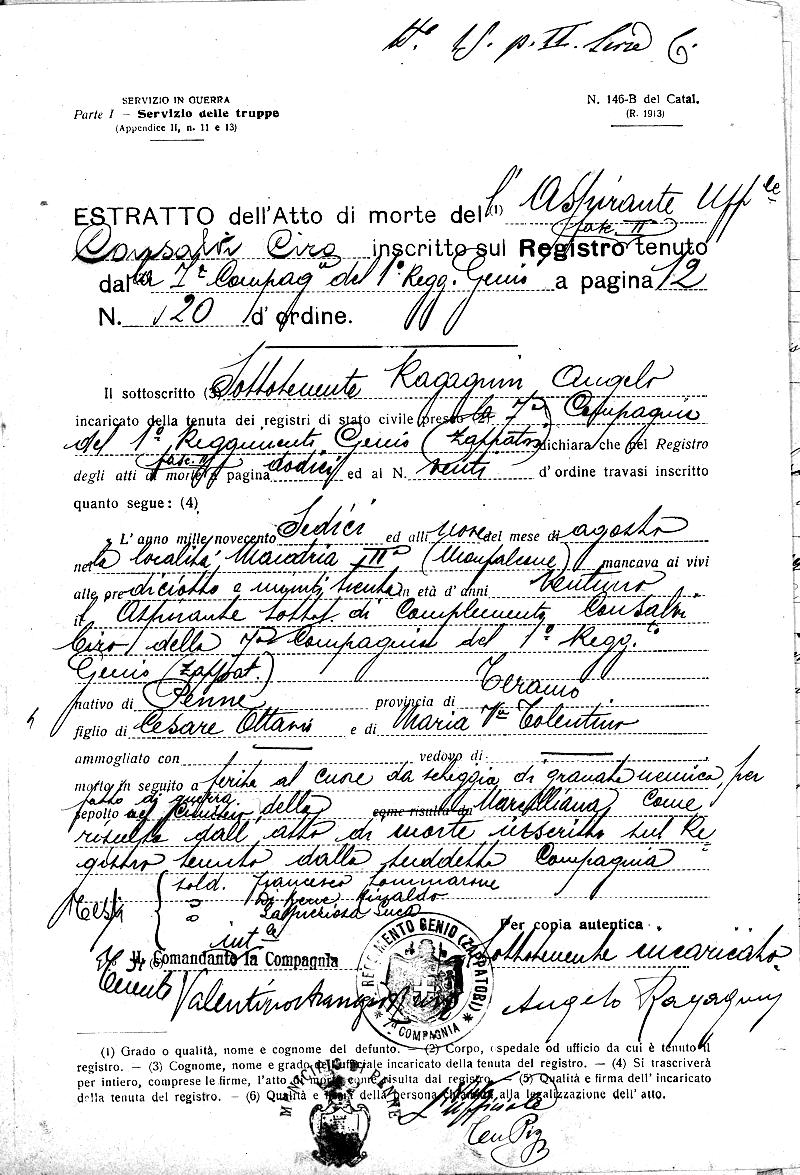 N.º 15. p. II. Serie C.
SERVIZIO IN GUERRA
Parte I — Servizio delle truppe
(Appendice II, n. 11 e 13)
N. 146-B del Catal.
(R. 1913)
ESTRATTO dell'Atto di morte del (1) l'Aspirante Uff.le
fasc. IIº
Consalvi Ciro inscritto sul Registro tenuto
dalla 7ª Compagª del 1º Regg. Genio a pagina 12
N. 20 d'ordine.
Il sottoscritto (3) Sottotenente Ragagnin Angelo
incaricato della tenuta dei registri di stato civile (presso (2) la 7ª Compagnia
del 1º Reggimento Genio (Zappatori) dichiara che nel Registro
degli atti di morte fasc. II a pagina dodici ed al N. venti d'ordine travasi inscritto
quanto segue: (4)
L'anno mille novecento Sedici ed alli nove del mese di agosto
nella località (Monfalcone) mancava ai vivi
alle ore diciotto e minuti trenta in età d'anni ventuno
il Aspirante sottot. di Complemento Consalvi
Ciro della 7ª Compagnia del 1º Regg.to
Genio (Zappat.)
nativo di Penne provincia di Teramo
figlio di Cesare Ottavio e di Maria Vª Tolentino
ammogliato con — vedovo di —
morto in seguito a ferita al cuore da scheggia di granata nemica, per
fatto di guerra.
sepolto nel Cimitero della come risulta da Marcilliana, come
risulta dall'atto di morte inscritto sul Re=
gistro tenuto dalla suddetta Compagnia
Testi sold. Francesco Sommarone
Di Rinaldo
Luca
intª
Per copia autentica
Il Comandante la Compagnia
Sottotenente incaricato
Tenente Valentino
Angelo Ragagnin
REGGIMENTO GENIO (ZAPPATORI)
* 7ª COMPAGNIA *
(1) Grado o qualità, nome e cognome del defunto. — (2) Corpo, ospedale od ufficio da cui è tenuto il
registro. — (3) Cognome, nome e grado dell'ufficiale incaricato della tenuta del registro. — (4) Si trascriverà
per intiero, comprese le firme, l'atto di morte come risulta dal registro. — (5) Qualità e firma dell'incaricato
della tenuta del registro. — (6) Qualità e firma della persona chiamata alla legalizzazione dell'atto.
MUNICIPIO DI PENNE
L'Ufficiale